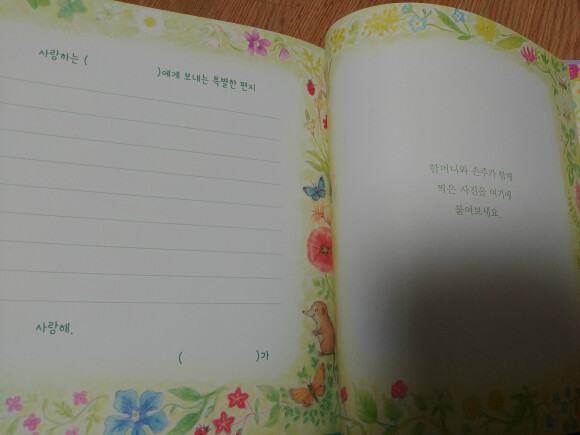 사랑하는 (                    )에게 보내는 특별한 편지
사랑해.
(                    )가
할머니와 손주가 함께
찍은 사진을 여기에
붙여보세요.